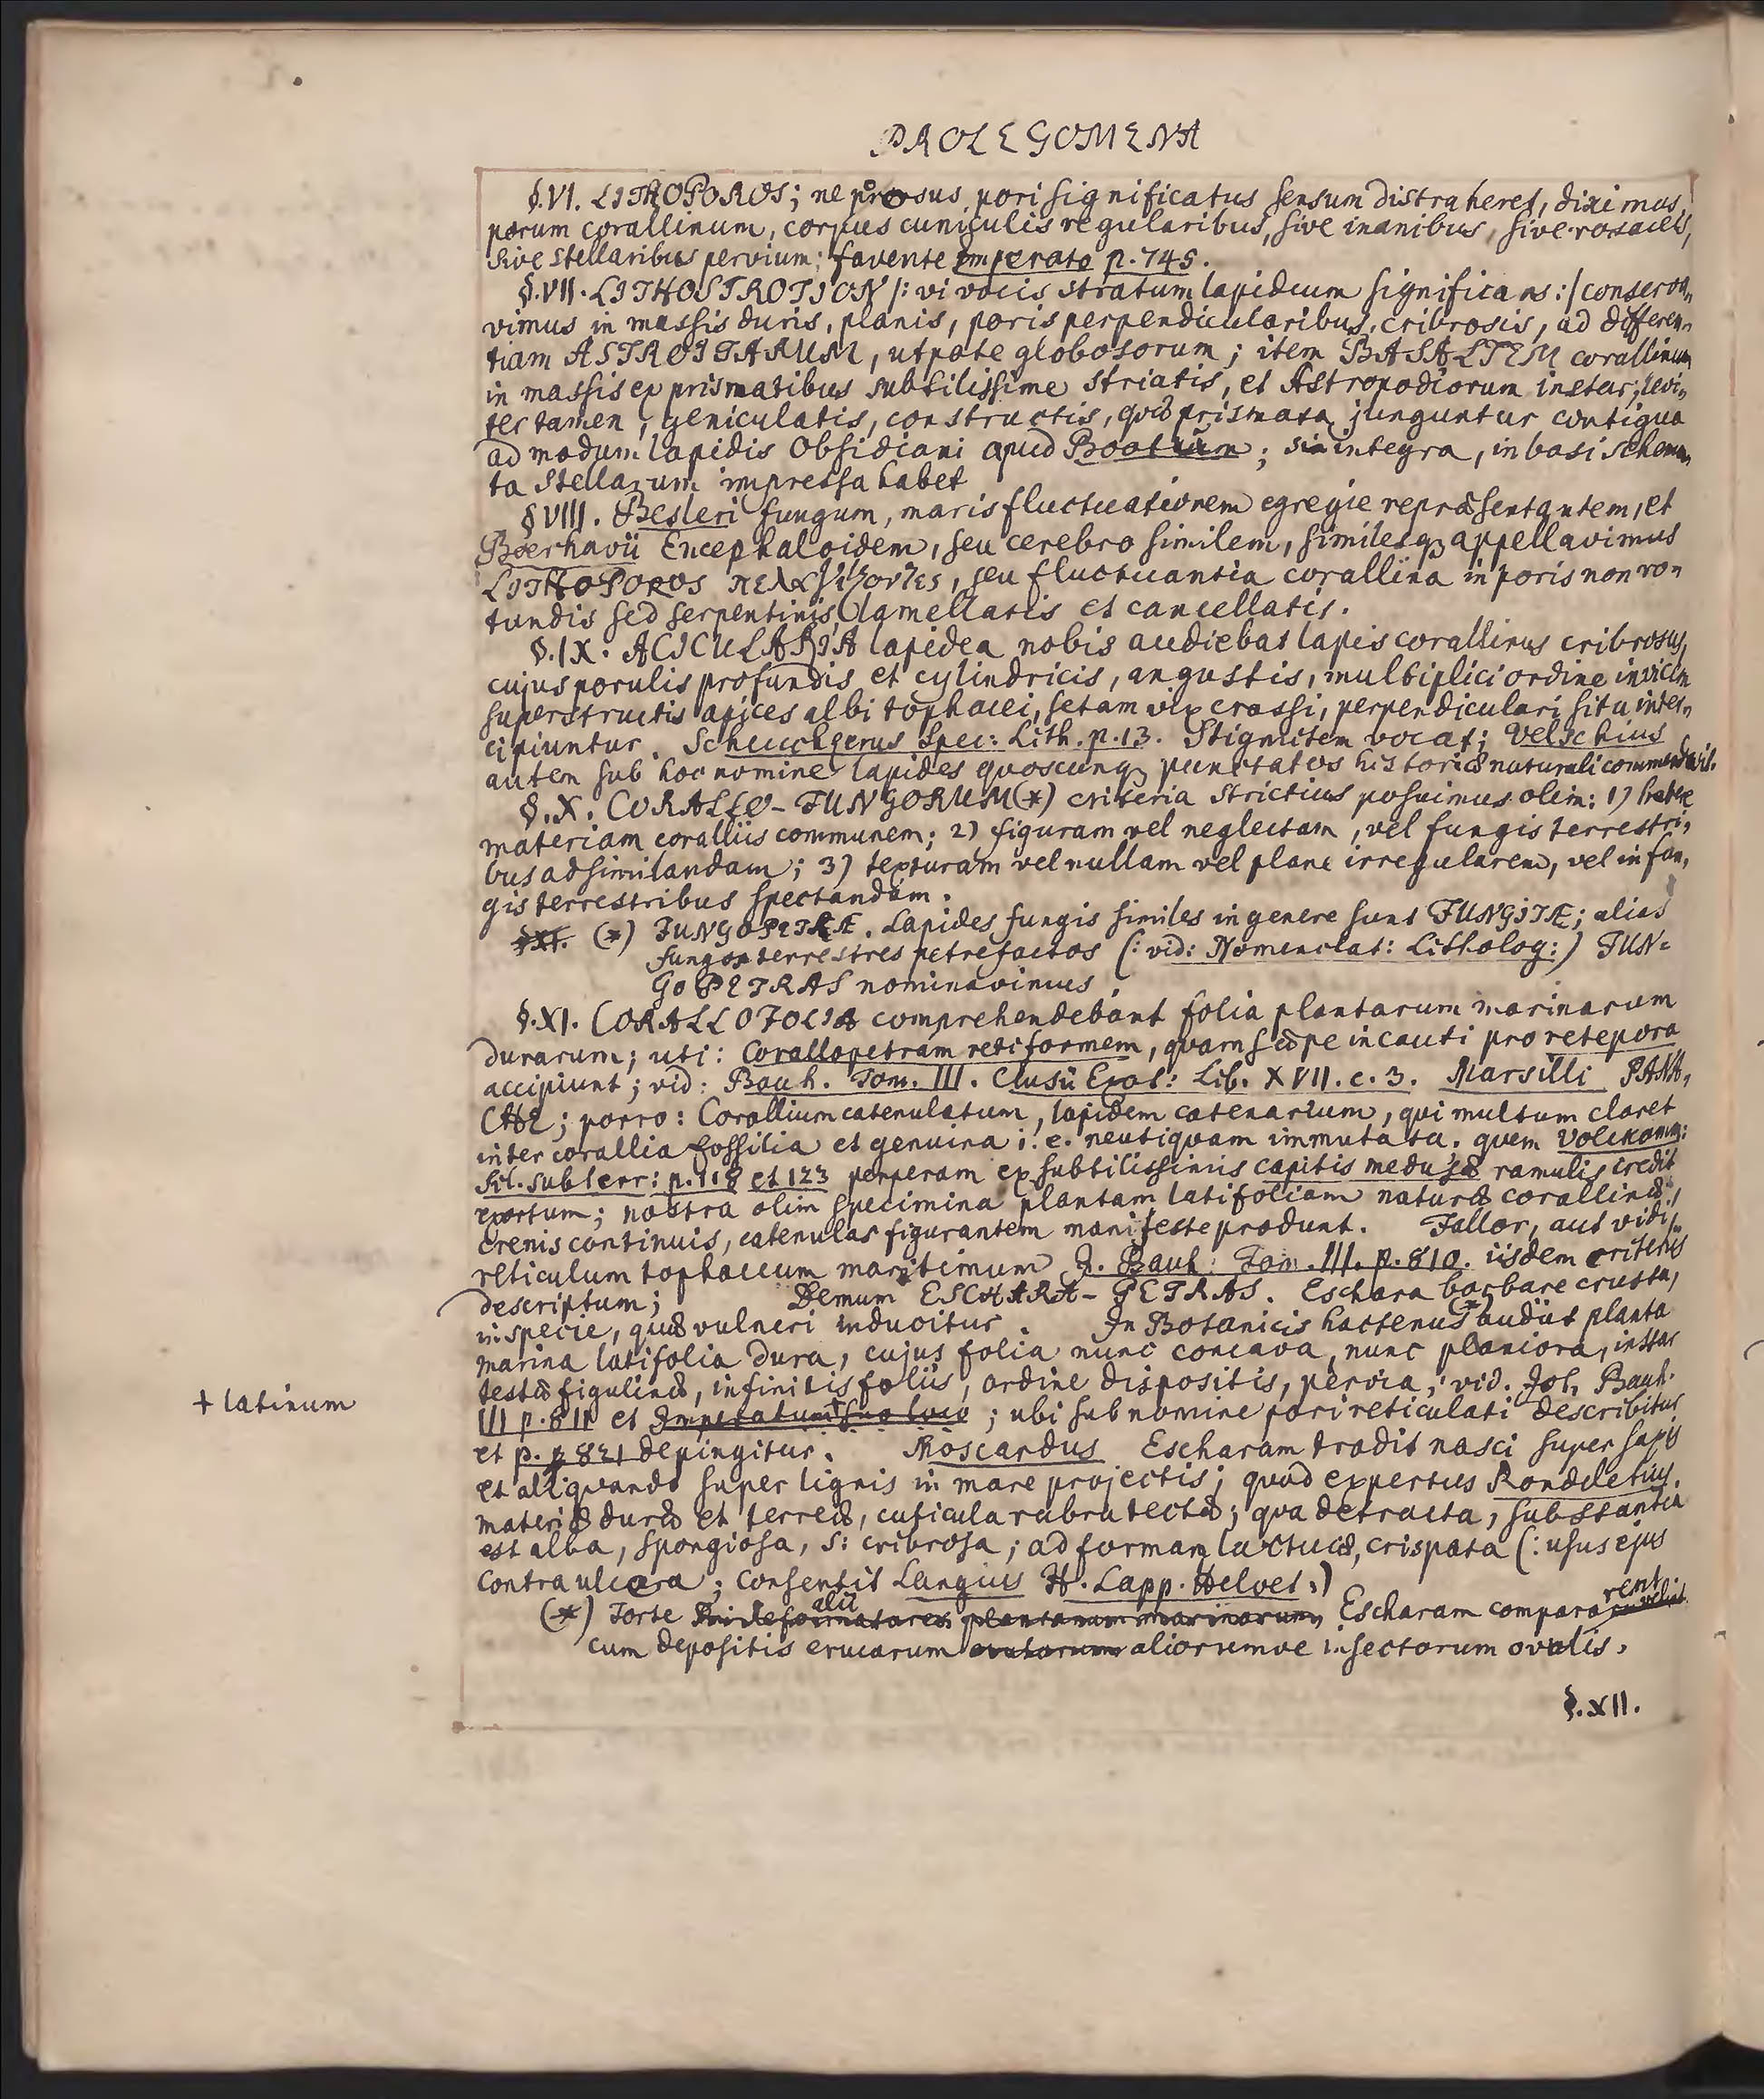 PROLEGOMENA
§.VI. LITHOPOROS; ne porosus pori significatus sensum distraheret, diximus
porum corallinum, corpus cuniculis regularibus, sive inanibus, sive rosaceis,
sive stellaribus pervium; favente Imperato p. 745.
§.VII. LITHOSTROTION /: vi vocis stratum lapideum significans :/ conserva„
vimus in massis duris, planis, poris perpendicularibus, cribrosis, ad differen„
tiam ASTROITARUM, utpote globosorum; item BASALTEM corallinum
in massis ex prismatibus subtilissime striatis, et Astropodiorum instar, levi„
ter tamen, geniculatis, constructis, quæ prismata junguntur contigua
ad modum lapidis Obsidiani apud Bootium; integra, in basi schema„
ta stellarum impressa habet
§ VIII. Besleri fungum, maris fluctuationem egregie repræsentantem, et
Boerhavii Encephaloidem, seu cerebro similem, similesqꝫ appellavimus
LITHOPOROS πελαγίζοντες, seu fluctuantia corallina in poris non ro„
tundis sed serpentinis, lamellatis et cancellatis.
§.IX. ACICULARIA lapidea nobis audiebat lapis corallinus cribrosus,
cujus porulis profundis et cylindricis, angustis, multiplici ordine invicem
superstructis apices albi tophacei, setam vix crassi, perpendiculari situ inter„
cipiuntur. Scheuchzerus Spec: Lith. p. 13. Stigmitem vocat; Velschius
autem sub hoc nomine lapides quoscunqꝫ punctatos historiæ naturali commendavit.
§.X. CORALLO-FUNGORUM (*) criteria strictius posuimus olim: 1) habere
materiam coralliis communem; 2) figuram vel neglectam, vel fungis terrestri„
bus adsimilandam; 3) texturam vel nullam vel plane irregularem, vel in fun„
gis terrestribus spectandam.
§XI. (*) FUNGOPETRÆ. Lapides fungis similes in genere sunt FUNGITÆ; alias
fungos terrestres petrefactos (: vid: Nomenclat: Litholog:) FUN=
GOPETRAS nominavimus.
§.XI. CORALLOFOLIA comprehendebant folia plantarum marinarum
durarum; uti: Corallopetram retiformem, quam sæpe incauti pro retepora
accipiunt; vid: Bauh. Tom. III. Clusii Exot: Lib. XVII. c. 3. Marsilli PANA„
CHE; porro: Corallium catenulatum, lapidem catenarium, qui multum claret
inter corallia fossilia et genuina i. e. neutiquam immutata. quem Volckamm:
Sil. subterr: p. 118 et 123 perperam ex subtilissimis capitis medusæ ramulis credit
exortum; nostra olim specimina plantam latifoliam naturæ corallinæ,
crenis continuis, catenulas figurantem manifeste produnt. Fallor, aut vidi
reticulum tophaceum maritimum J. Bauh: Tom. III. p. 810. iisdem criteriis
descriptum; Demum ESCHARA-PETRAS. Eschara barbare crusta,
in specie, quæ vulneri inducitur. In Botanicis hactenus (*) audiit planta
marina latifolia dura, cujus folia nunc concava, nunc planiora, instar
testæ figulinæ, infinitis foliis, ordine dispositis, pervia; vid. Joh. Bauh.
III p. 811 et Imperatum + suo loco; ubi sub nomine pori reticulati describitur
+ latinum
et p. 821 depingitur. Moscardus Escharam tradit nasci super saxis
et aliquando super lignis in mare projectis; quod expertus Rondeletius.
materiæ duræ et terreæ, cuticula rubra tectæ; qua detracta, substantia
est alba, spongiosa, s: cribrosa; ad formam lactucæ, crispata (: usus ejus
contra ulcera; consentit Langius H. Lapp. Helvet:)
(*) Forte alii plantarum marinarum Escharam compararent
cum depositis erucarum aliorumve insectorum ovulis.
§.XII.